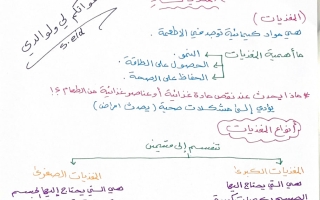 (المغذيات)
دعواتكم لي ولوالدي
هي مواد كيميائية توجد في الأطعمة
ما أهمية المغذيات
النمو.
الحصول على الطاقة
الحفاظ على الصحة
* ماذا يحدث عند نقص مادة غذائية أو عناصر غذائية من الطعام ؟!
يؤدي إلى مشكلات صحية (يحدث أمراض)
أنواع المغذيات
تنقسم إلى مجموعتين
المغذيات الكبرى
المغذيات الصغرى
هي التي يحتاج إليها
هي التي يحتاج إليها الجسم
الجسم بكميات كبيرة